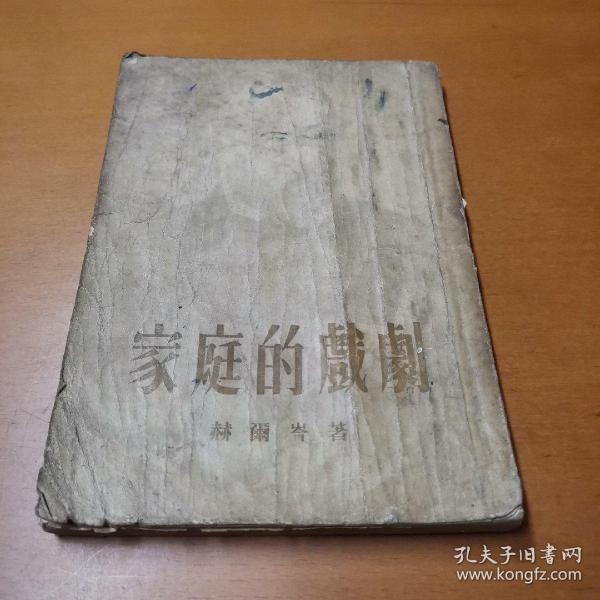 家庭的戲劇
赫爾岑著
孔夫子旧书网
www.kongfz.com